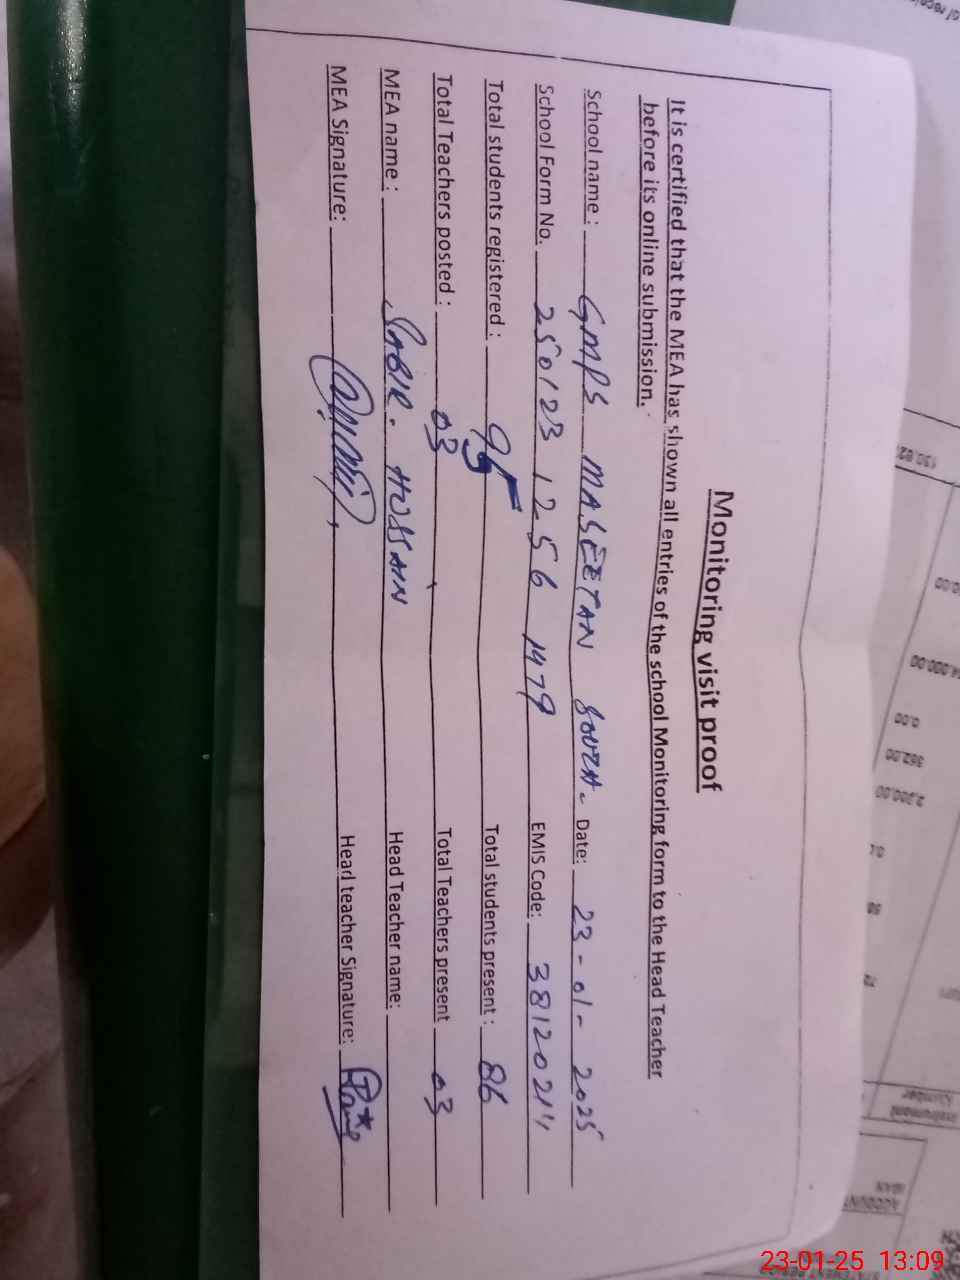 Monitoring visit proof
It is certified that the MEA has shown all entries of the school Monitoring form to the Head Teacher
before its online submission.
School name : GMPS MASEETAN SOUTH. Date: 23-01-2025
School Form No. 250123 1256 1479 EMIS Code: 38120211
Total students registered : 95 Total students present : 86
Total Teachers posted : 03 Total Teachers present 03
MEA name : SABIR. HUSSAIN Head Teacher name:
MEA Signature: Head teacher Signature:
130 62
0.00
362.00
2,000.00
50
72
Instrument
Number
ACCOUNT
IBAN
23-01-25 13:09